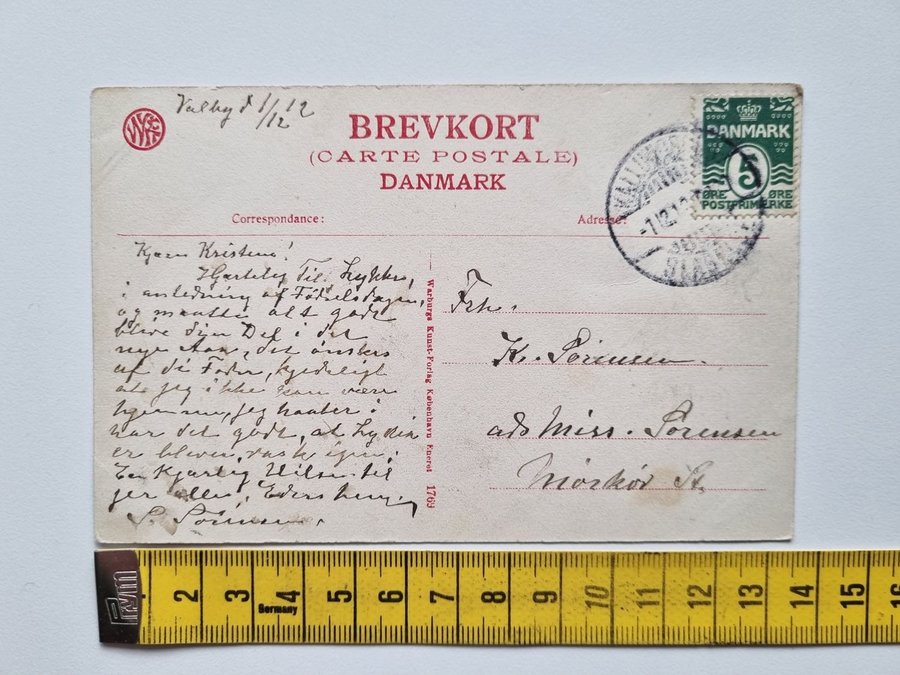 Valby d 1/12 12
BREVKORT
(CARTE POSTALE)
DANMARK
DANMARK
5
ØRE ØRE
POSTFRIMÆRKE
-1.12.12
Correspondance:
Adresse:
Kjære Kristine!
Hjertelig Til Lykke,
i anledning af Fødselsdagen,
og maatte alt godt
blive din Del i det
nye Aar, det ønskes
af din Fader, kjedeligt
at jeg ikke kan være
hjemme, jeg haaber i
har det godt, at Lydia
er bleven rask igen.
En Kjærlig Hilsen til
jer alle, Eders
S. Sørensen.
Warburgs Kunst-Forlag København Eneret 1769
Frk.
K. Sørensen.
ads Miss. Sørensen
Mørkøv St.
Prym
2 3 4 5 6 7 8 9 10 11 12 13 14 15 16
Germany